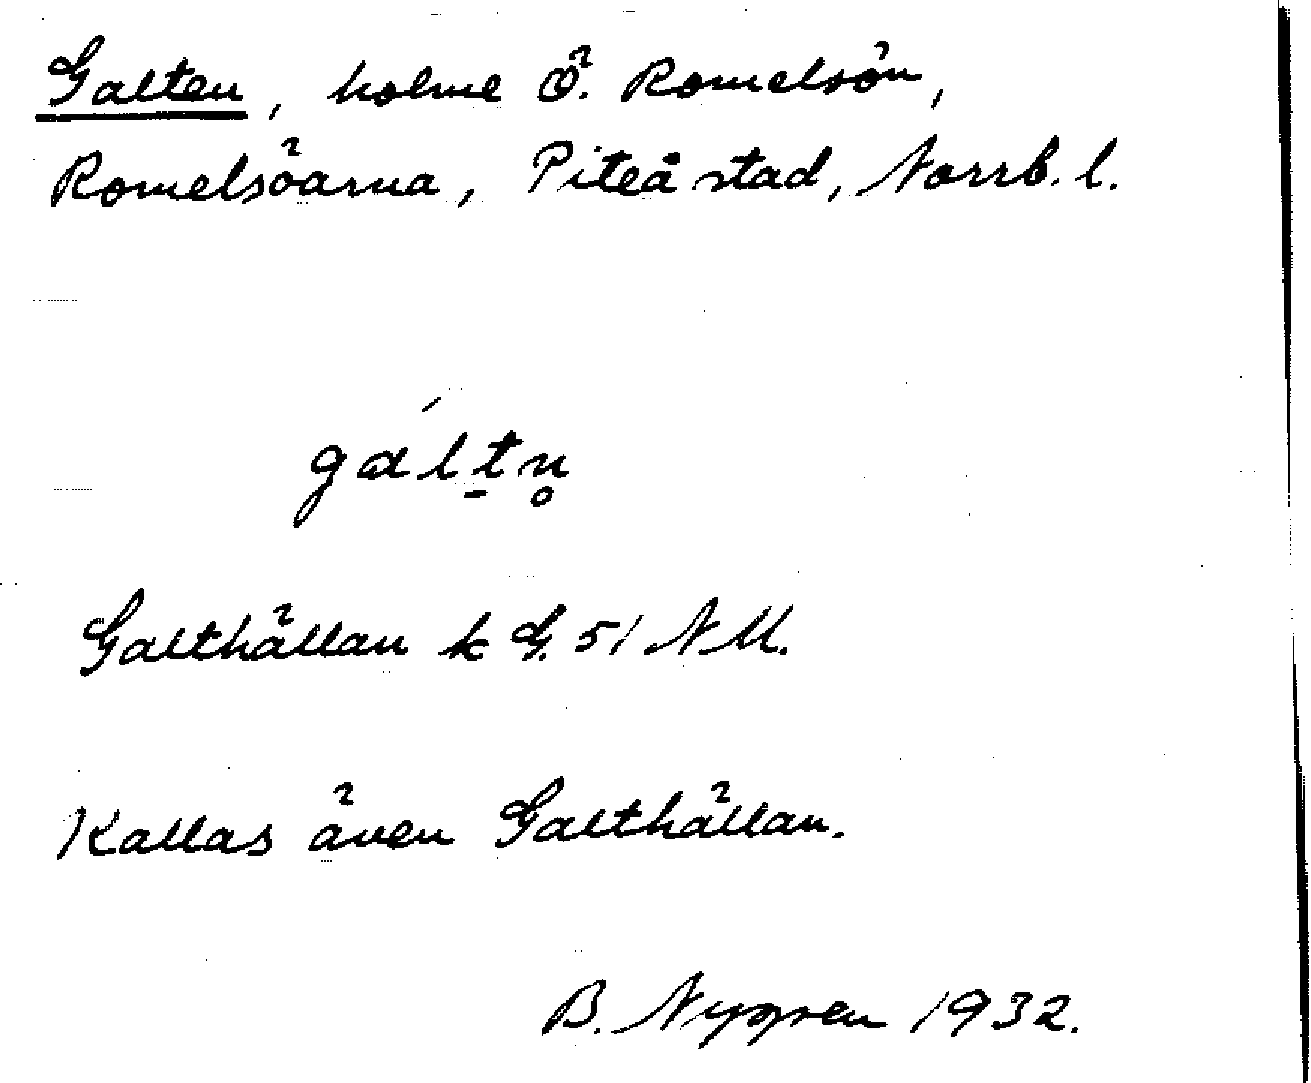 Galten, holme Ö. Romelsön,
Romelsöarna, Piteå stad, Norrb. l.
gáltn̥
Galthällan k G. 51 NU.
Kallas även Galthällan.
B. Nygren 1932.